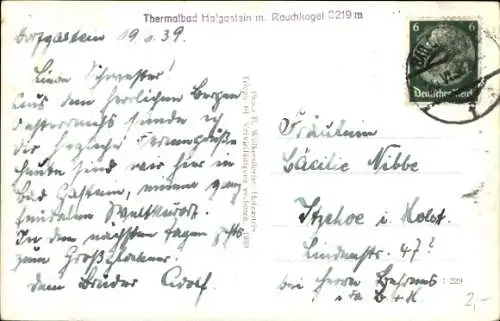 Thermalbad Hofgastein m. Rauchkogel 2219 m
Hofgastein 19. 39.
Liebe Schwester!
Aus den herrlichen Bergen
Österreichs sende ich
dir herzliche Feriengrüße
Heute sind wir hier in
Bad Gastein, einem ganz
feudalen Weltkurort.
In den nächsten Tagen gehts
zum Großglockner.
Dein Bruder Adolf.
6
Deutsches Reich
Fräulein
Cäcilie Nibbe
Itzehoe i. Holst.
Lindenstr. 47?
bei Herrn Behrens
2,-